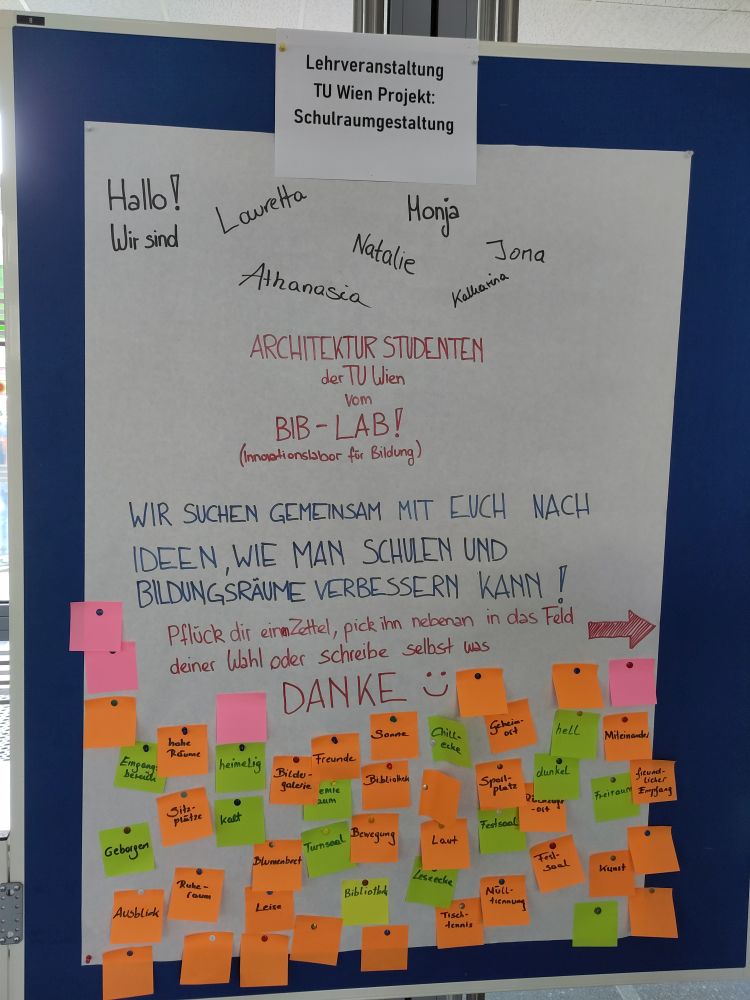 Lehrveranstaltung
TU Wien Projekt:
Schulraumgestaltung
Hallo!
Wir sind
Lauretta
Monja
Natalie
Jona
Athanasia
Katharina
ARCHITEKTUR STUDENTEN
der TU Wien
vom
BIB-LAB!
(Innovationslabor für Bildung)
WIR SUCHEN GEMEINSAM MIT EUCH NACH
IDEEN, WIE MAN SCHULEN UND
BILDUNGSRÄUME VERBESSERN KANN!
Pflück dir einen Zettel, pick ihn nebenan in das Feld
deiner Wahl oder schreibe selbst was
DANKE
Eingangs-
bereich
hohe
Räume
heimelig
Bilder-
galerie
Freunde
Sonne
Chill-
ecke
Geheim-
ort
hell
Miteinander
Bibliothek
Sport-
platz
dunkel
Freiraum
freund-
licher
Empfang
Sitz-
plätze
kalt
Geborgen
Turnsaal
Bewegung
Laut
Festsaal
Fest-
saal
Kunst
Blumenbeet
Ruhe-
raum
Ausblick
Leise
Bibliothek
Leseecke
Tisch-
tennis
Müll-
trennung